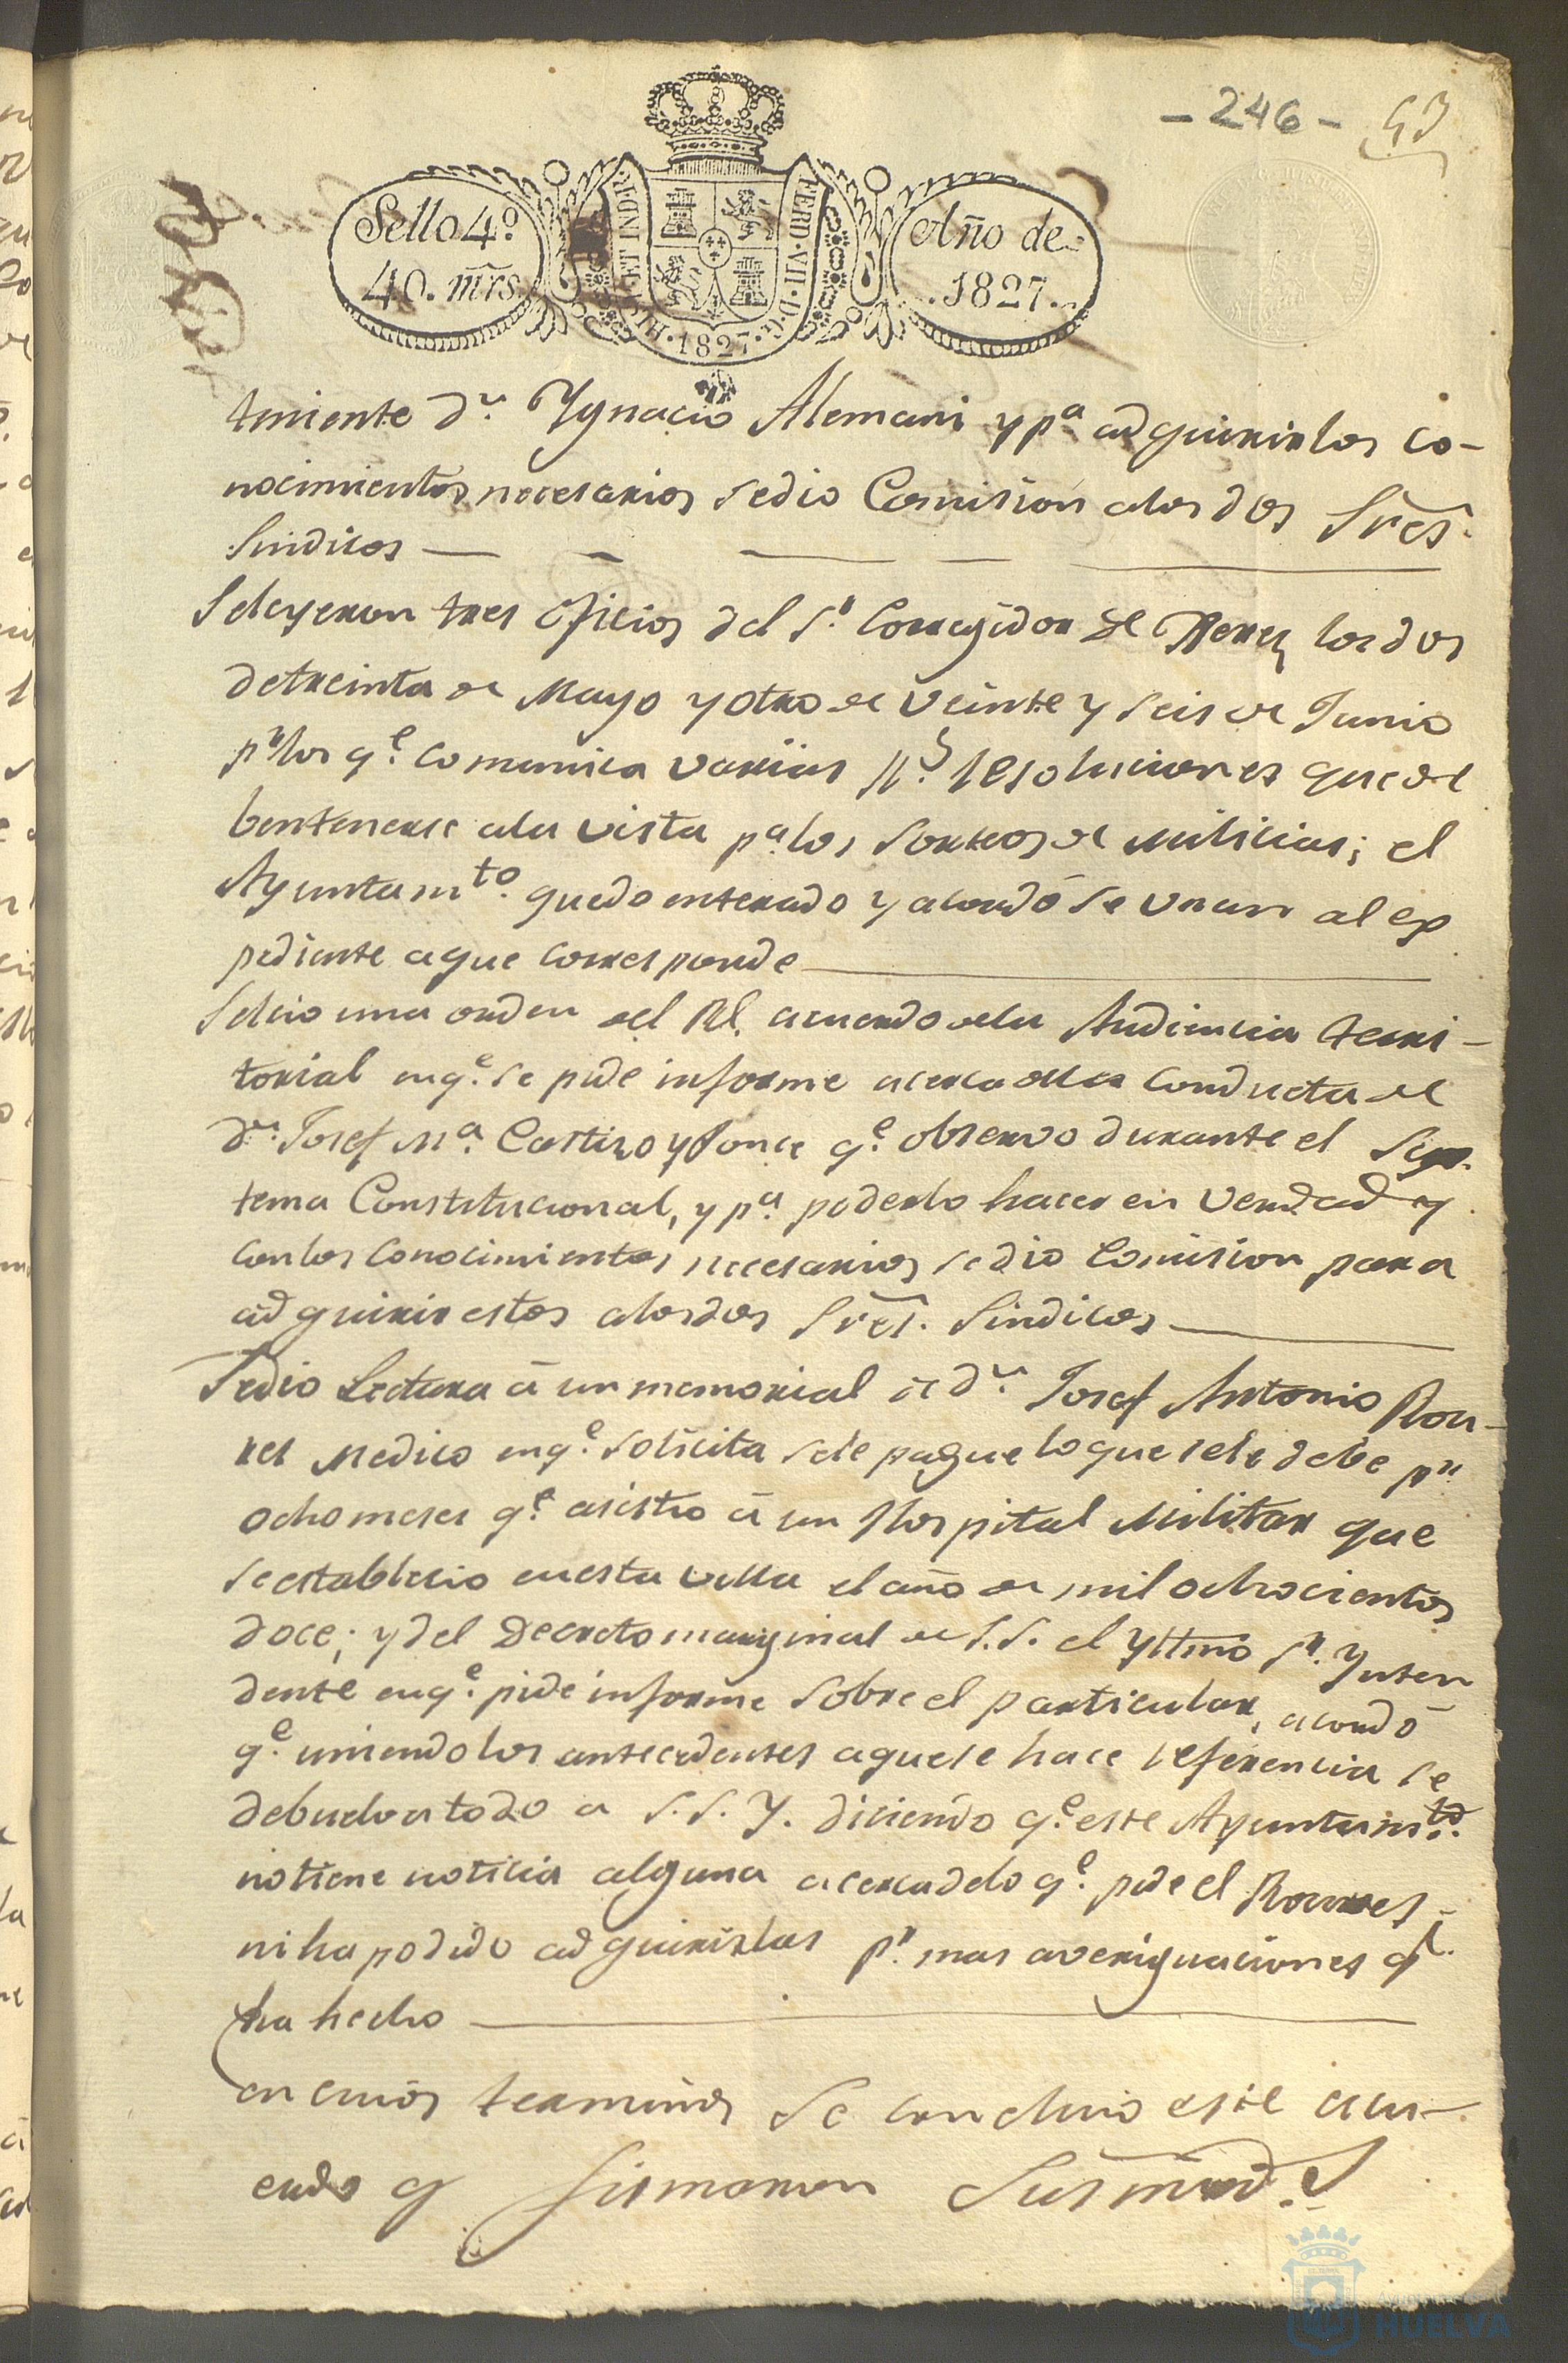 - 246 - 53
Sello 4º
40. mrs
HISP. ET IND. R.
FERD. VII. D. G.
.1827.
Año de
.1827.
teniente Dn. Ygnacio Alemani y pa. adquirir los co-
nocimientos necesarios se dio Comision a los dos Sres.
Sindicos
Se leyeron tres oficios del Sr. Corregidor de Xerez los dos
de treinta de Mayo y otro de veinte y seis de Junio
pr. los qe. comunica varias Rs. resoluciones que de
ben tenerse a la vista pa. los sorteos de milicias; el
Ayuntamto. quedo enterado y acordó se unan al ex
pediente a que corresponde
Se leio una orden del Rl. acuerdo de la Audiencia terri-
torial en qe. se pide informe acerca de la conducta de
Dn. Josef Ma. Castizo y Ponce qe. observo durante el Sys-
tema Constitucional, y pa. poderlo hacer en verdad y
con los conocimientos necesarios se dio Comision para
adquirir estos a los dos Sres. Sindicos
Se dio Lectura á un memorial de Dn. Josef Antonio Rou-
res Medico en qe. solicita se le pague lo que se le debe pr.
ocho meses qe. asistio á un Hospital Militar que
se establecio en esta villa el año de mil ochocientos
doce; y del Decreto marginal de S.S. el Yltmo Sr. Ynten
dente en qe. pide informe sobre el particular, acordó
qe. uniendo los antecedentes a que se hace referencia se
debuelva todo a S.S.Y. diciendo qe. este Ayuntamto.
no tiene noticia alguna acerca de lo qe. pide el Roures,
ni ha podido adquirirlas pr. mas averiguaciones qe.
ha hecho
en cuios terminos se concluio este acu-
erdo q firmaron Sus mrds.
HUELVA